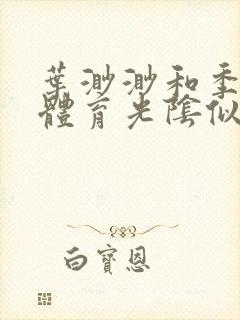 葉渺渺和季
體育光陰似
白寶恩